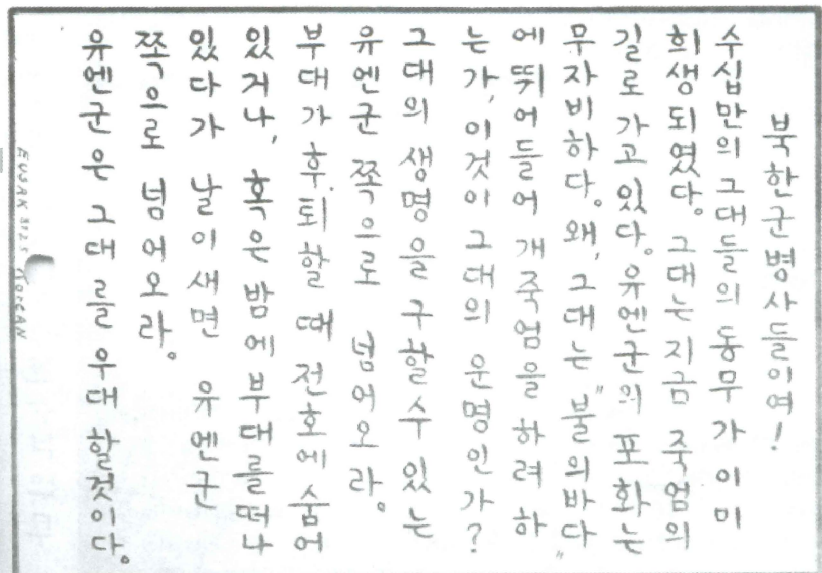 북한군병사들이여!
수십만의 그대들의 동무가 이미
희생되였다. 그대는 지금 죽엄의
길로 가고 있다. 유엔군의 포화는
무자비하다. 왜, 그대는 "불의바다"
에 뛰어들어 개죽엄을 하려 하
는가, 이것이 그대의 운명인가?
그대의 생명을 구할수 있는
유엔군 쪽으로 넘어오라.
부대가 후퇴할 때 전호에 숨어
있거나, 혹은 밤에 부대를떠나
있다가 날이새면 유엔군
쪽으로 넘어오라.
유엔군은 그대를 우대 할것이다.
EUSAK 8325 KOREAN